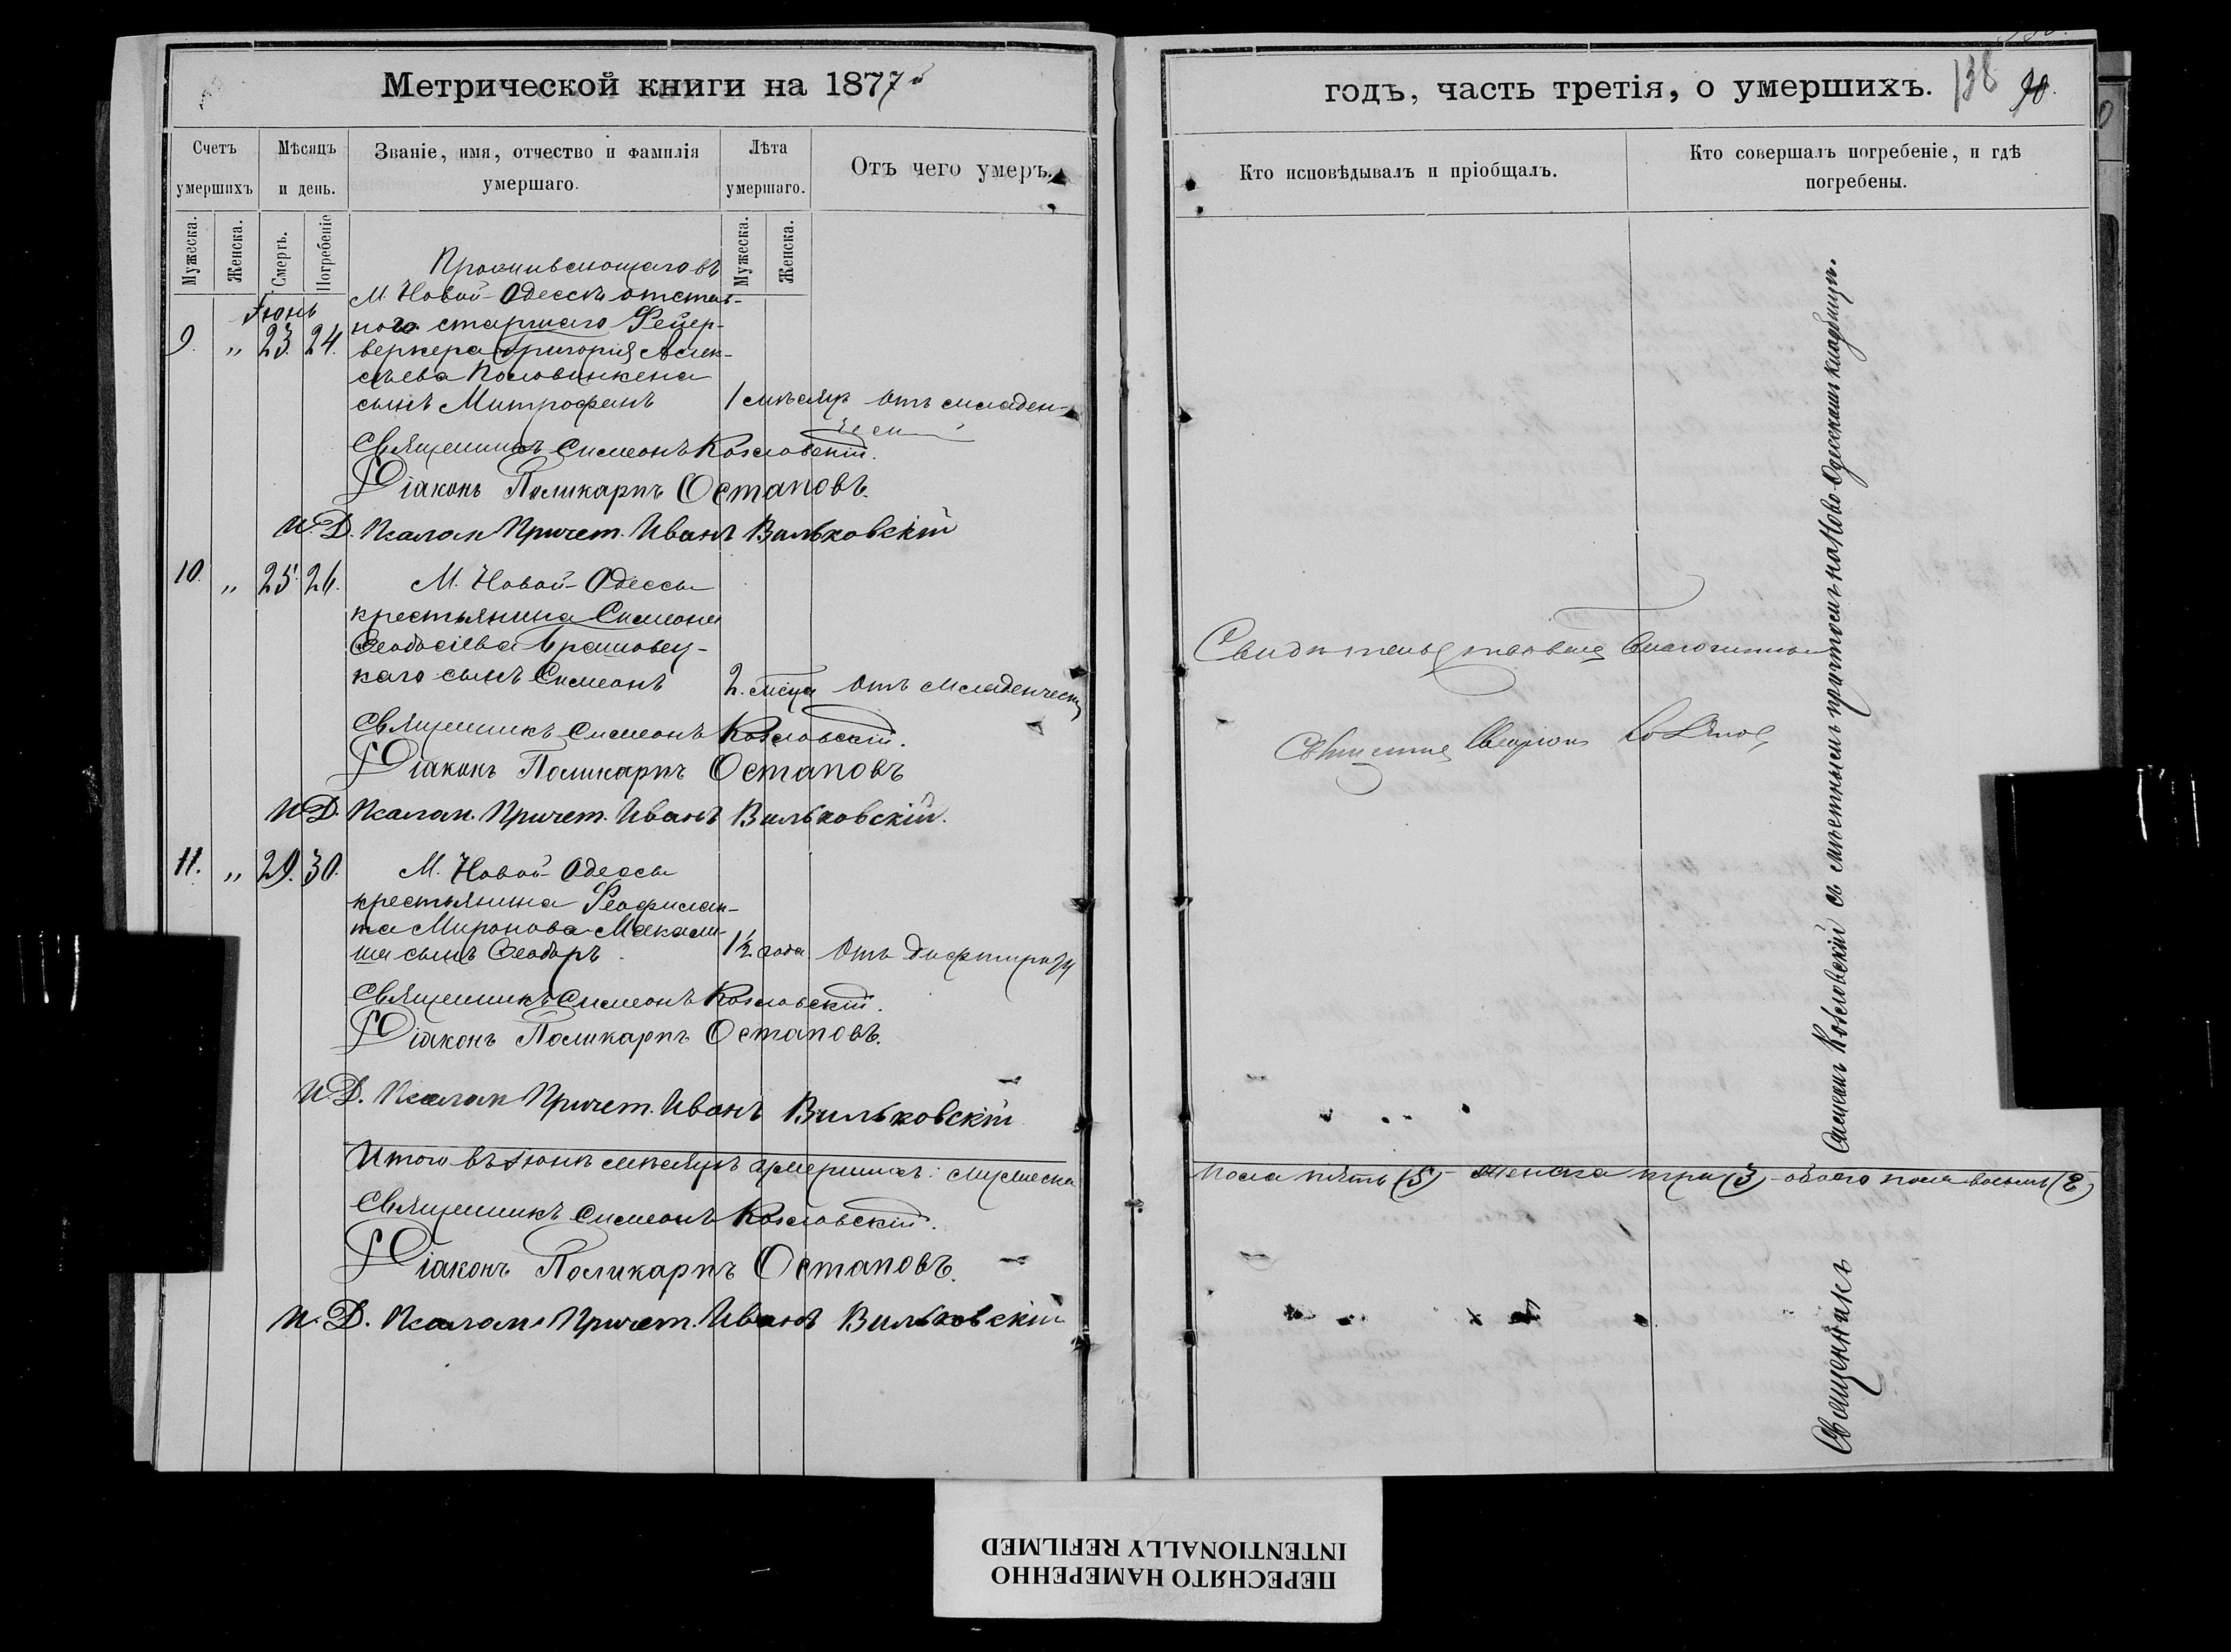 Метрической книги на 1877й
Счетъ умершихъ
Мѣсяцъ и день.
Званіе, имя, отчество и фамилія умершаго.
Лѣта умершаго.
Отъ чего умеръ.
Мужеска.
Женска.
Смерть.
Погребеніе
Мужеска.
Женска.
Іюнь
Проживающаго въ
М. Новой-Одессѣ отстав-
ного старшаго Фейер-
9. „ 23. 24. веркера Григорія Алек-
сѣева Половинкена
сынъ Митрофанъ 1 мѣсяцъ отъ младен-
Священникъ Симеонъ Козловскій.
Діаконъ Поликарпъ Остаповъ.
И. Д. Псалом Причет. Иванъ Вильковскій
10. „ 25. 26. М. Новой-Одессы
крестьянина Симеона
Ѳеодосіева
каго сынъ Симеонъ 2. мѣсца отъ младенческ
Священникъ Симеонъ Козловскій.
Діаконъ Поликарпъ Остаповъ
И. Д. Псалом. Причет. Иванъ Вильковскій.
11. „ 29. 30. М. Новой-Одессы
крестьянина Феофилак-
та Миронова
сынъ Ѳеодоръ 1½ года. отъ
Священникъ Симеонъ Козловскій.
Діаконъ Поликарпъ Остаповъ.
И. Д. Псалом Причет. Иванъ Вильковскій
Итого въ Іюнѣ мѣсяцѣ умершихъ: мужеска
Священникъ Симеонъ Козловскій.
Діаконъ Поликарпъ Остаповъ.
И. Д. Псалом. Причет. Иванъ Вильковскій
годъ, часть третія, о умершихъ.
138
Кто исповѣдывалъ и пріобщалъ.
Кто совершалъ погребеніе, и гдѣ погребены.
пола пять (5) женска три (3) обоего пола восемь (8)
Священникъ Симеонъ Козловскій съ мѣстнымъ причтомъ на Ново-Одесскомъ кладбищѣ.
ПЕРЕСНЯТО НАМЕРЕННО
INTENTIONALLY REFILMED